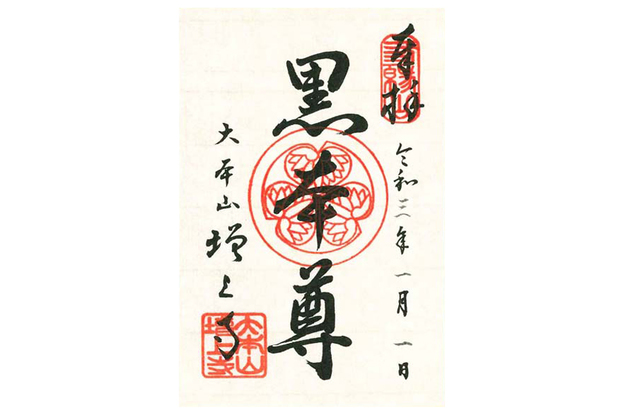 奉拝
令和三年一月一日
黒本尊
大本山増上寺
大本山
増上寺